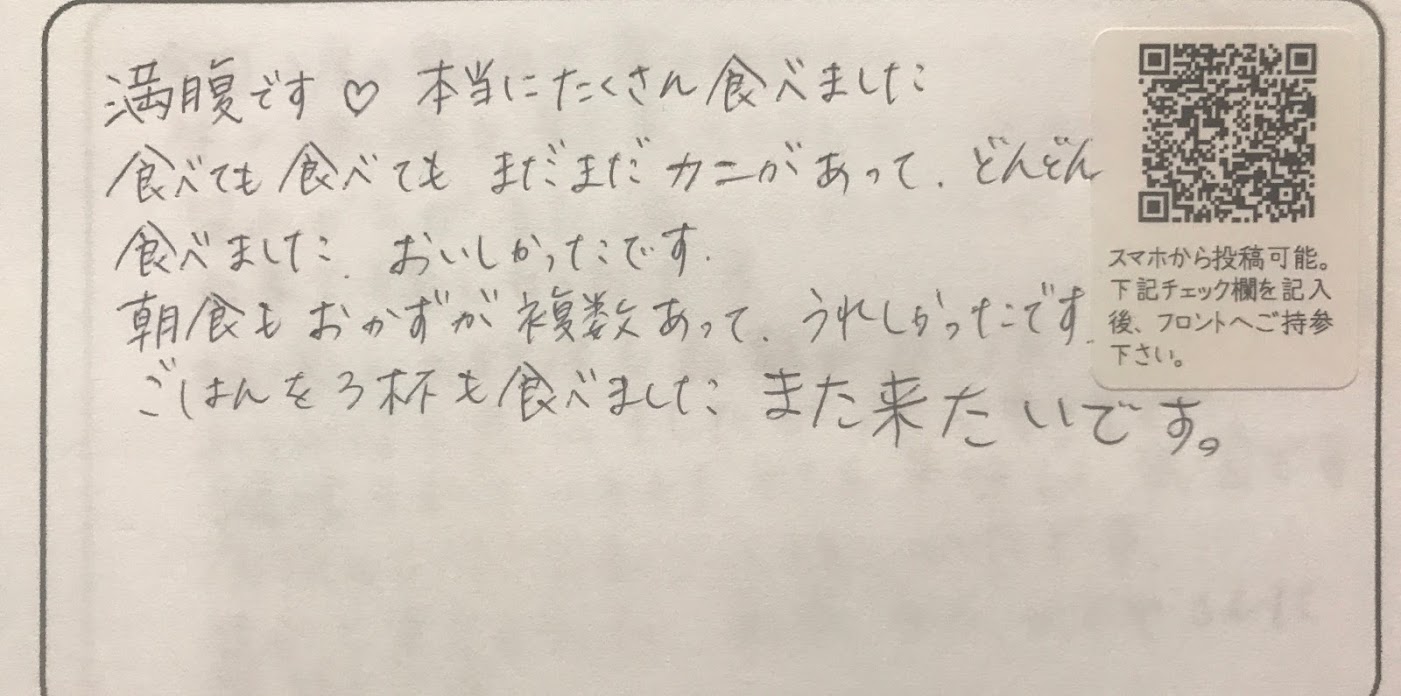 満腹です♡ 本当にたくさん食べました
食べても食べても まだまだカニがあって、どんどん
食べました。おいしかったです。
朝食もおかずが複数あって、うれしかったです。
ごはんを3杯も食べました また来たいです。
スマホから投稿可能。
下記チェック欄を記入
後、フロントへご持参
下さい。